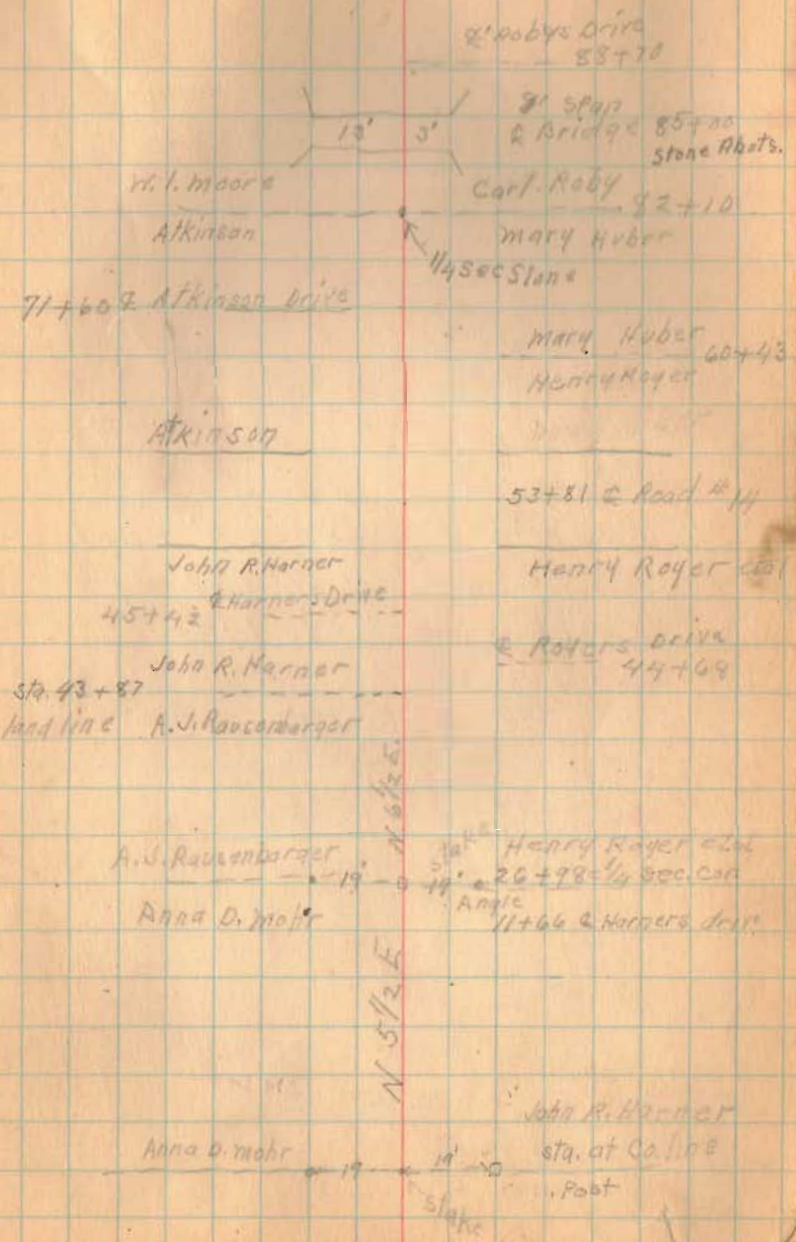 ℄ Robys Drive
88+70
8' span
℄ Bridge 85+00
Stone Abots.
13' 3'
W.I. Moore Carl. Roby
82+10
Atkinson Mary Huber
1/4 Sec Stone
71+60 ℄ Atkinson Drive
Mary Huber
60+43
Henry Royer
Atkinson
53+81 ℄ Road # 14
John R. Harner Henry Royer etal
45+42 ℄ Harners Drive
℄ Royers Drive
44+68
John R. Harner
sta. 43+87
land line A.J. Rausenbarger
N 6 1/2 E.
A.J. Rausenbarger stake Henry Royer etal
19' 19' 26+98 = 1/4 Sec. cor
Angle
Anna D. Mohr 11+66 ℄ Harners driv.
N 5 1/2 E
John R. Harner
Anna D. Mohr 19 19' sta. at Co. line
Post
stake